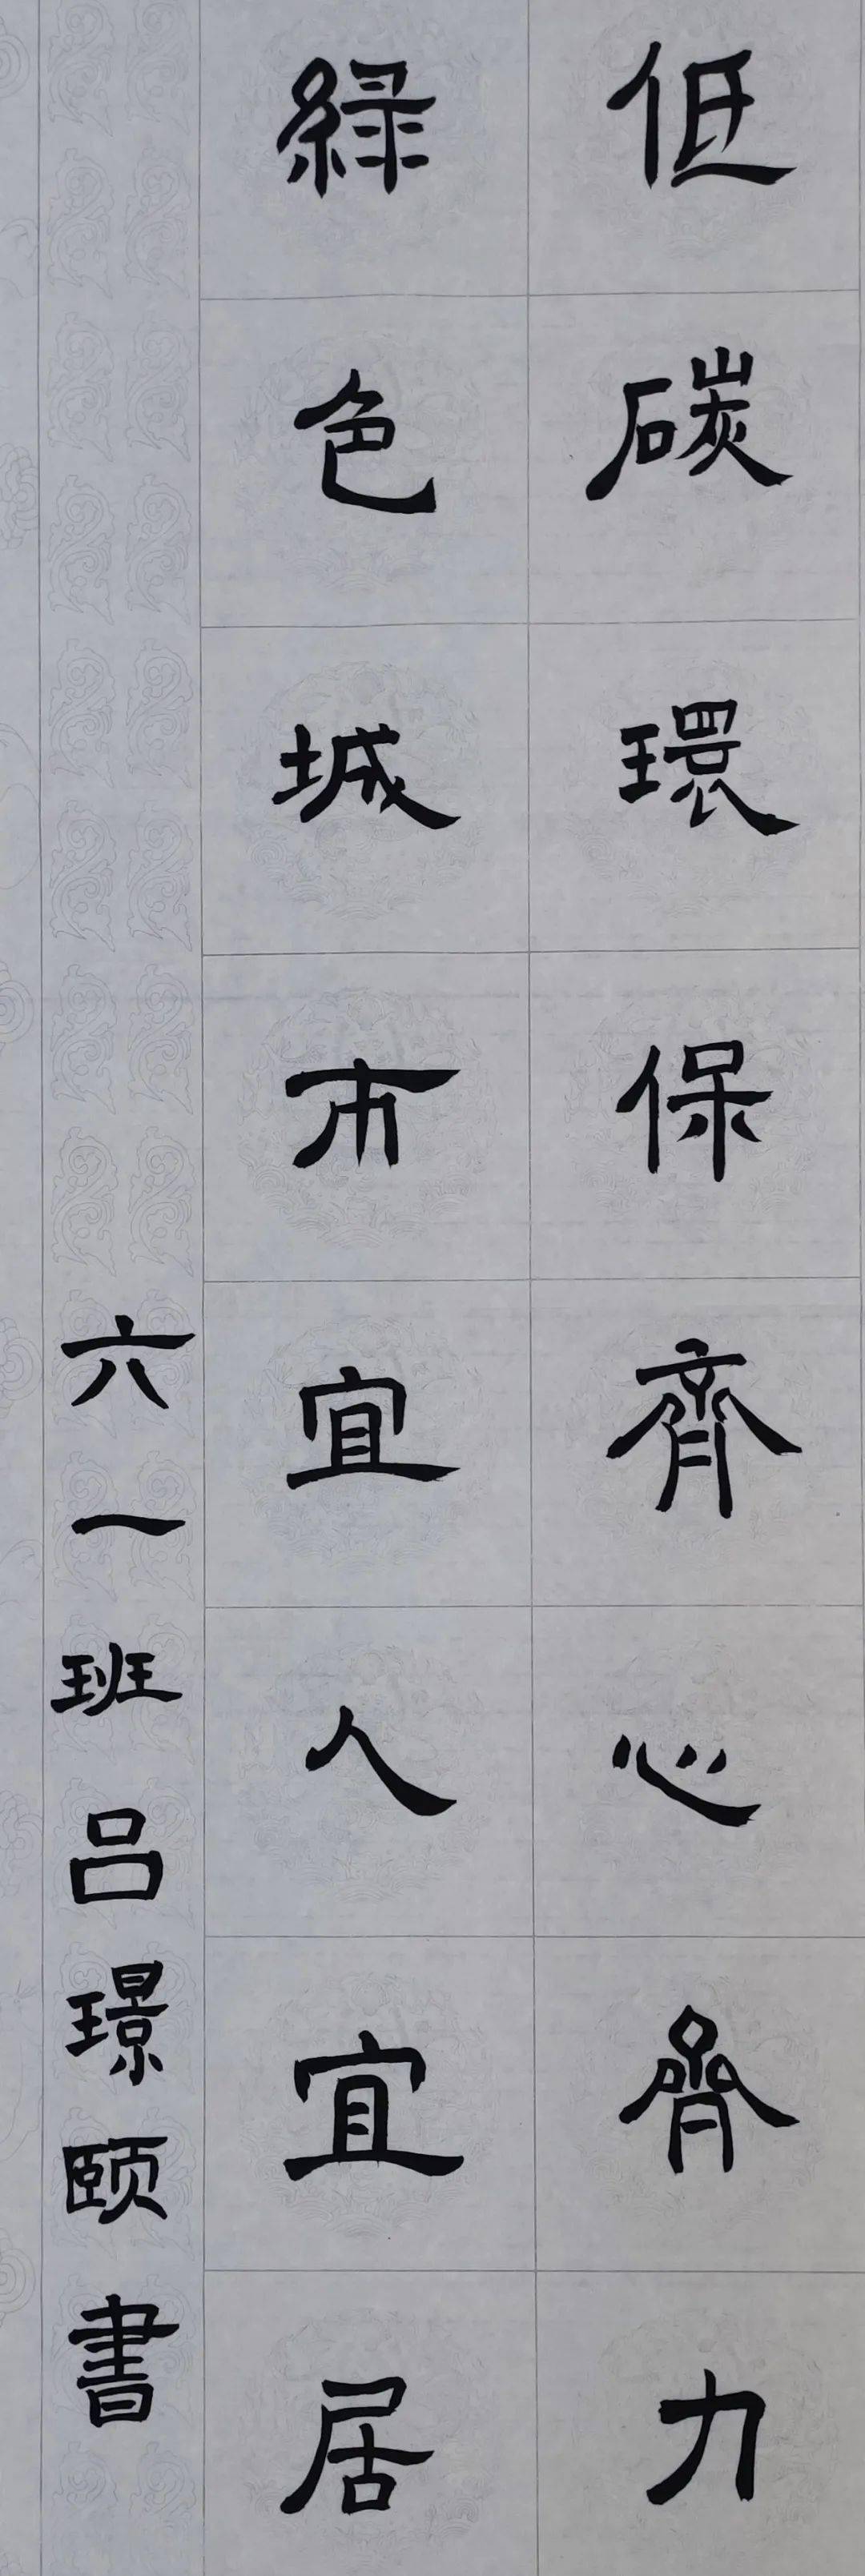 低碳環保齊心齊力
緑色城市宜人宜居
六一班吕璟颐書